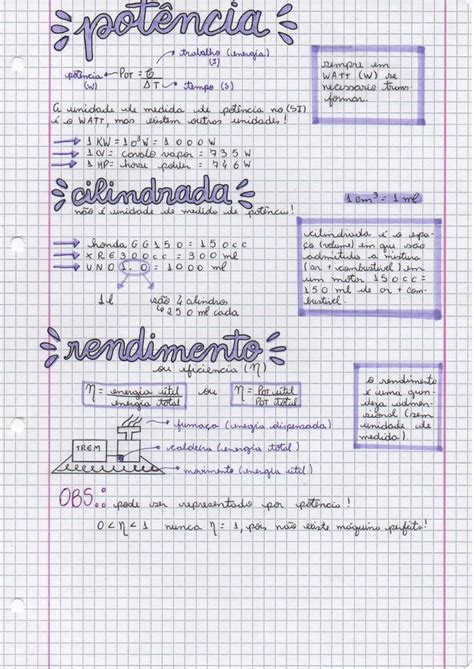 potência
trabalho (energia)
(J)
potência
(W)
POT = τ / ΔT
tempo (s)
sempre em
WATT (W) se
necessario trans
formar.
A unidade de medida de potência no (SI)
é o WATT, mas existem outras unidades!
1 KW = 10³W = 1000W
1 CV = cavalo vapor = 735W
1 HP = horse power = 746W
cilindrada
não é unidade de medida de potência!
1cm³ = 1 ml
honda CG 150 = 150cc
XRE300cc = 300 ml
UNO 1.0 = 1000 ml
1 l
são 4 cilindros
250 ml cada
cilindrada é o espa
ço (volume) em que são
admitida a mistura
(ar + combustível) em
um motor 150cc=
150 ml de ar + com
bustível.
rendimento
ou eficiência (η)
η = energia útil / energia total
ou
η = POT útil / POT total
o rendimento
é uma gran
deza adimen
sional (sem
unidade de
medida).
fumaça (energia dispensada)
TREM
caldeira (energia total)
movimento (energia útil)
OBS.: pode ser representado por potência!
0 < η < 1 nunca η = 1, pois não existe máquina perfeita!